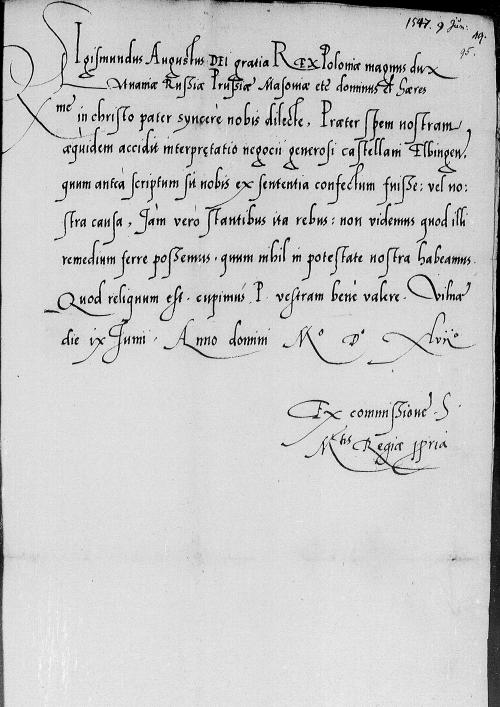 1547. 9 Jun.
49.
95.
SIgismundus Augustus DEI gratia REX Poloniæ magnus dux
Lituaniæ Russiæ Prussiæ Masoviæ etc dominus et hæres
Rme in christo pater syncerè nobis dilecte, Præter spem nostram
æquidem accidit interpretatio negocii generosi castellani Elbingen,
quum anteà scriptum sit nobis ex sententia confectum fuisse: vel no:
stra causa, Jàm verò stantibus ita rebus: non videmus quod illi
remedium ferre possemus, quum nihil in potestate nostra habeamus.
Quod reliquum est, cupimus P. vestram benè valere. Vilnæ
die ix Junii. Anno domini Mo Do xlviio
Ex commissione S.
Mtis Regiæ ppria